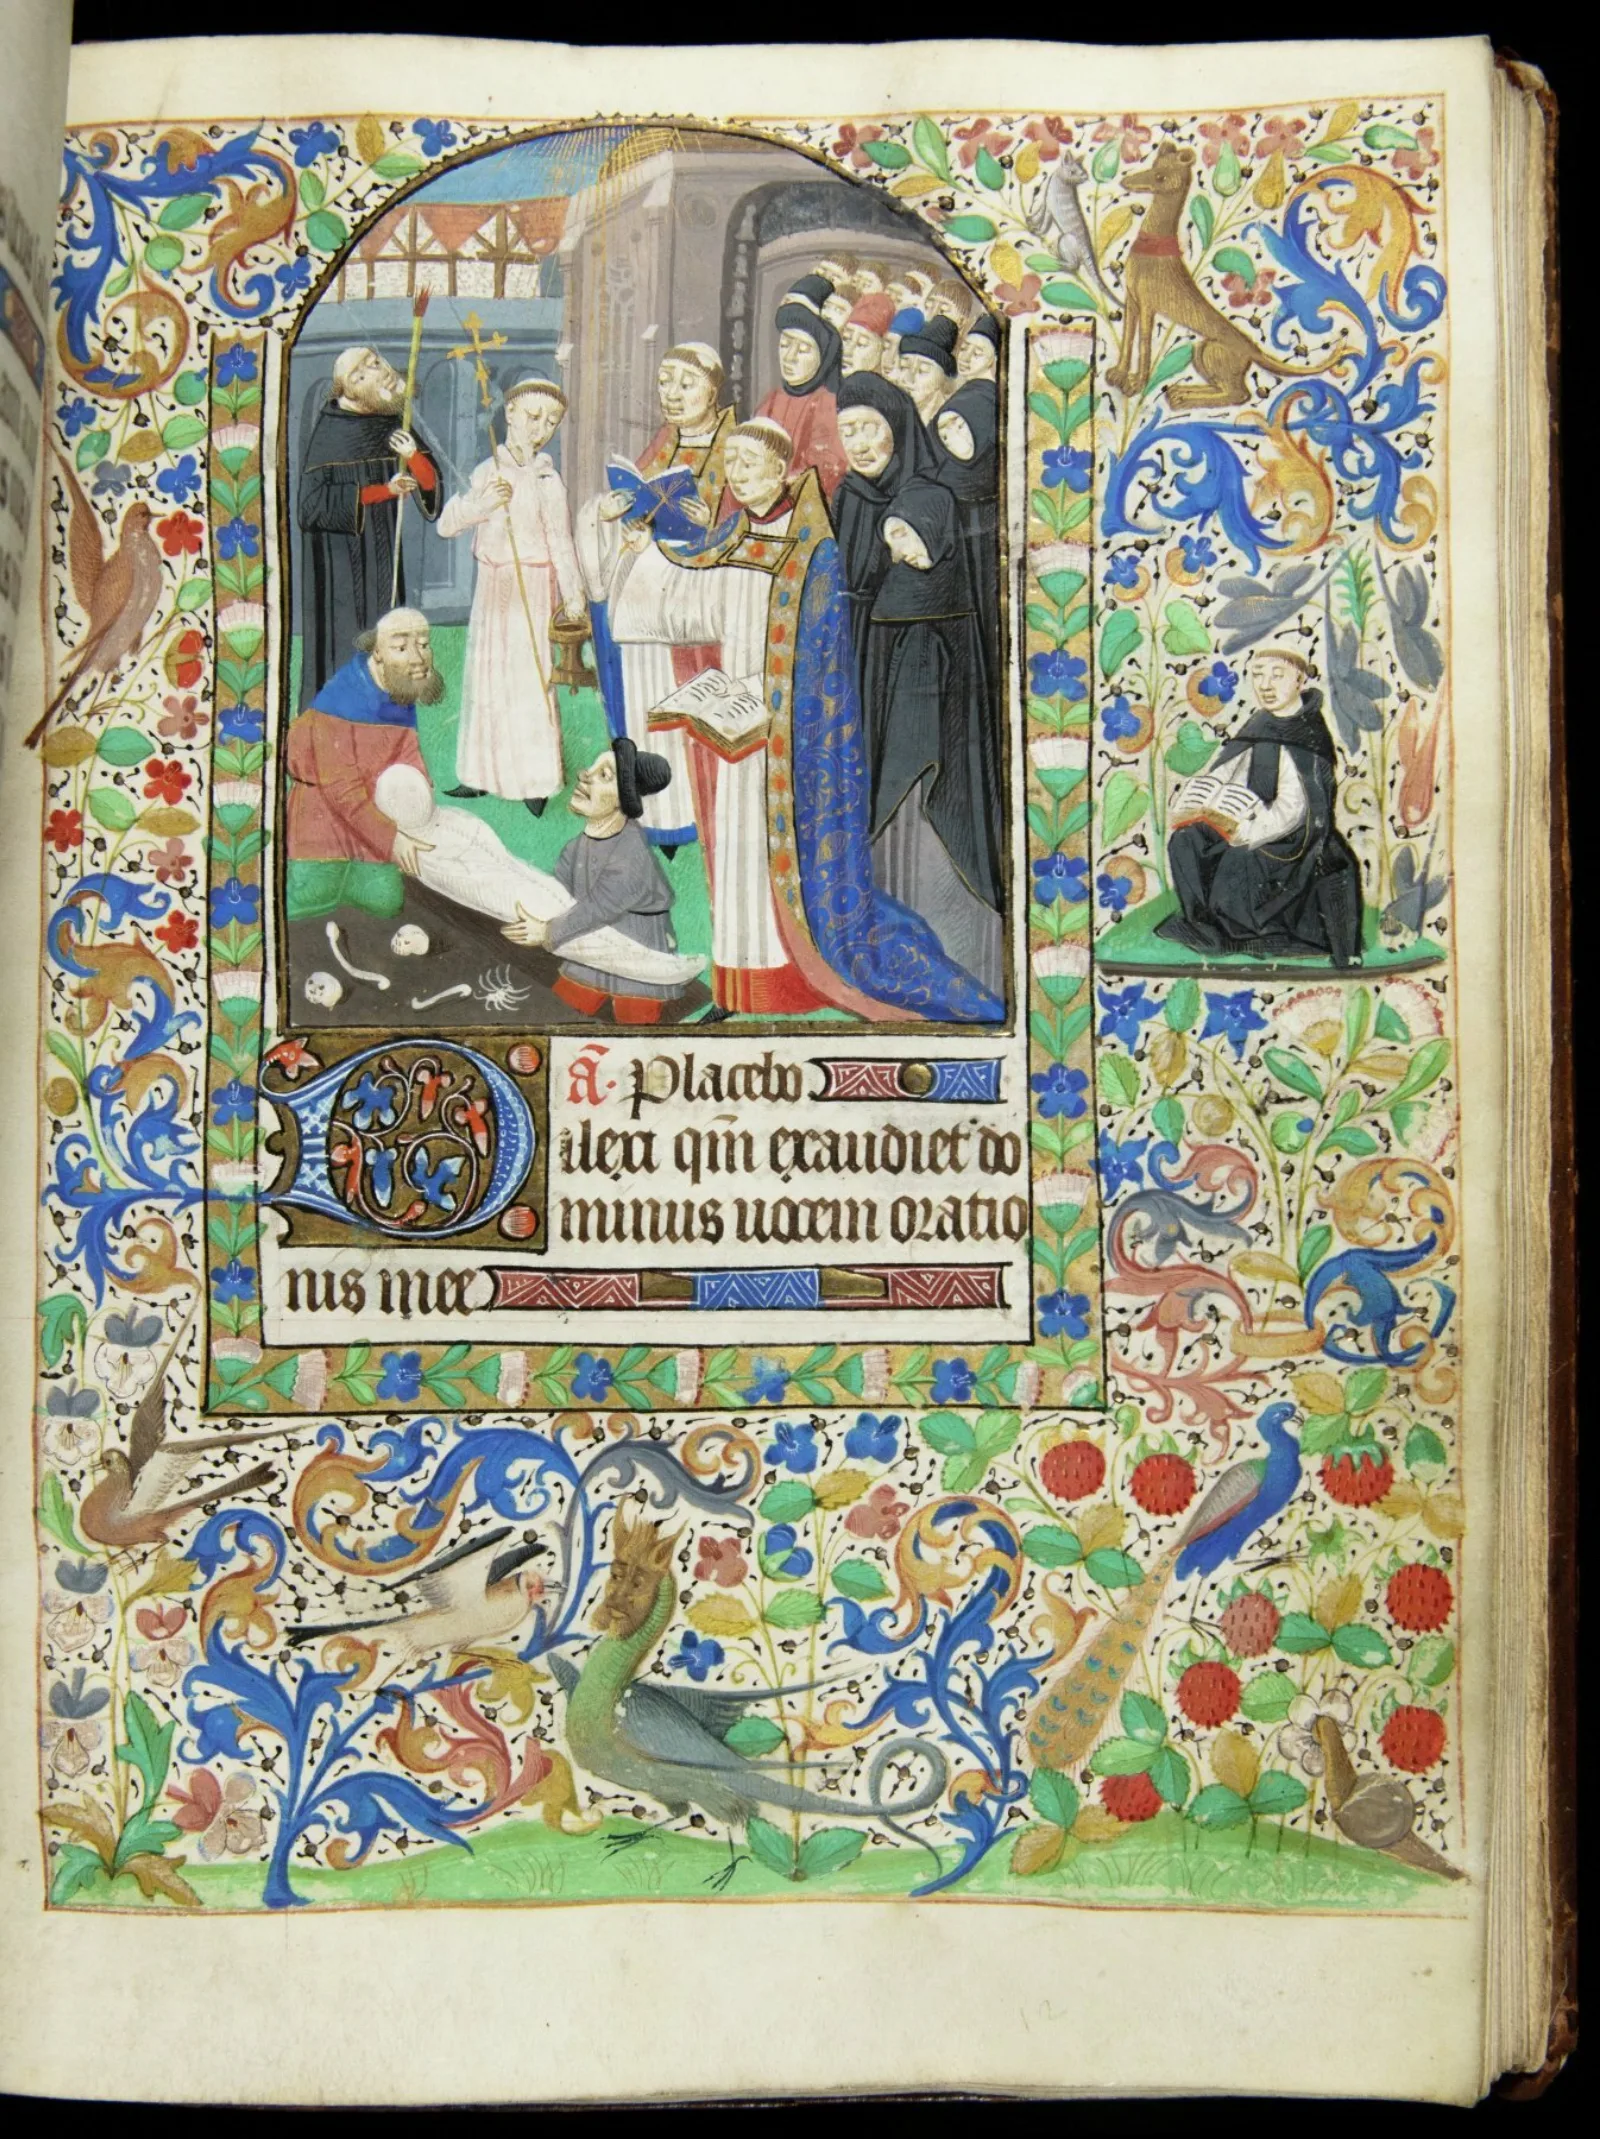 a̅. Placebo
Dilexi qm̅ exaudiet do
minus uocem oratio
nis mee